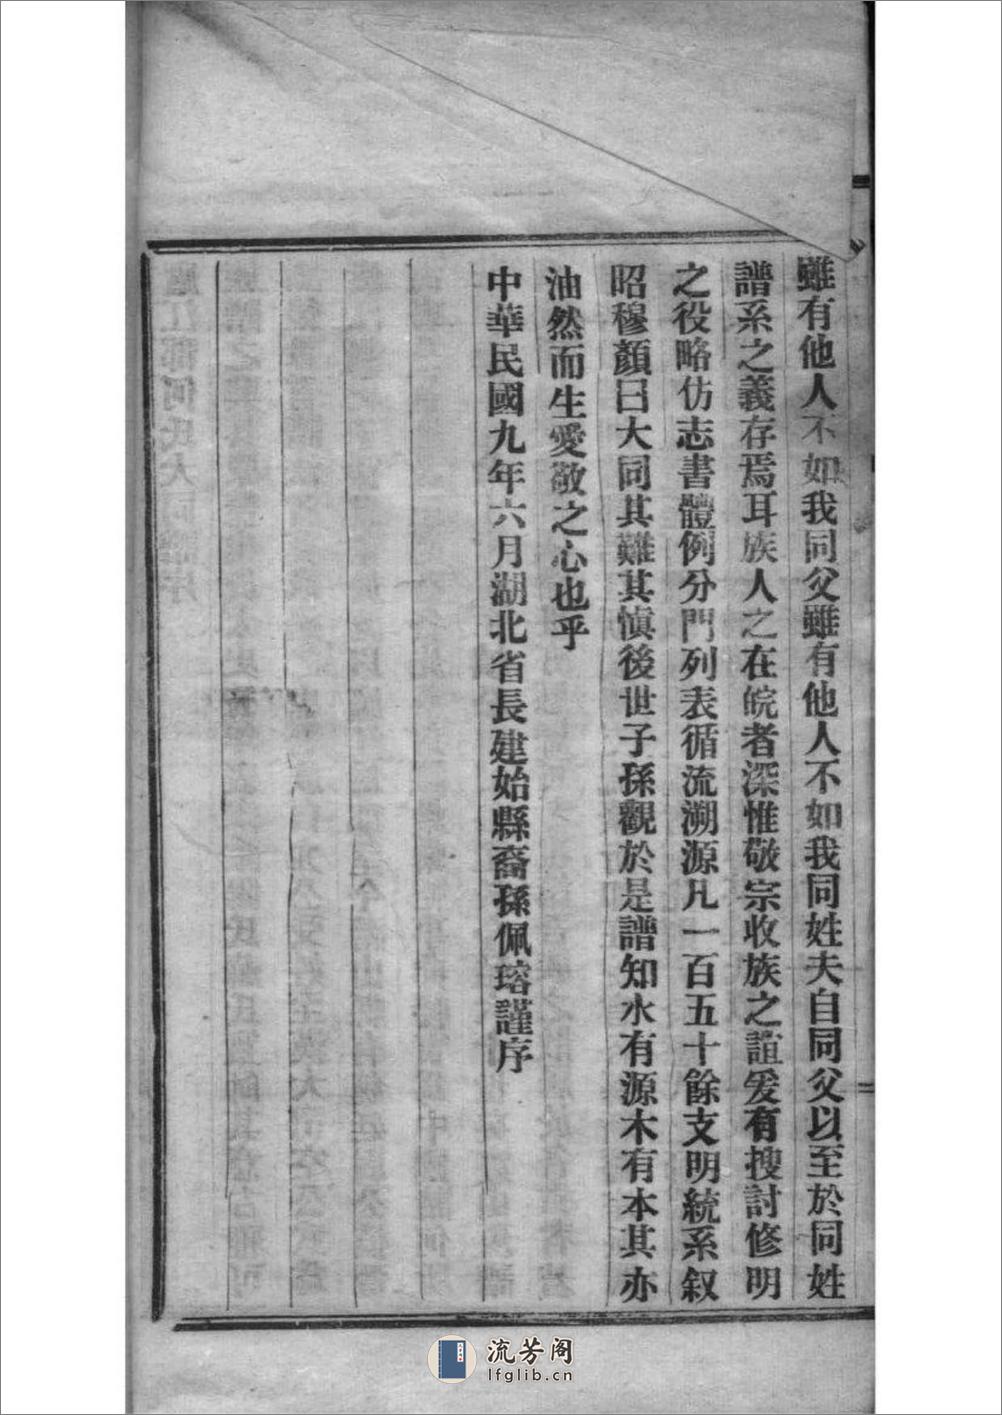 雖有他人不如我同父雖有他人不如我同姓夫自同父以至於同姓
譜系之義存焉耳族人之在皖者深惟敬宗收族之誼爰有搜討修明
之役略仿志書體例分門列表循流溯源凡一百五十餘支明統系叙
昭穆顏曰大同其難其慎後世子孫觀於是譜知水有源木有本其亦
油然而生愛敬之心也乎
中華民國九年六月湖北省長建始縣裔孫佩瑢謹序
流芳阁
lfglib.cn